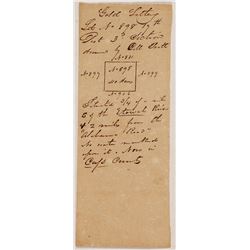 Gold Lottery
Lot No 898 17th
Dist 3d Section
drawn by
No 831
No 897
No 898
40 Acres
No 899
No 906
Situated 3/4 of a mile
of the Etowah River
& 2 miles from the
Alabama Road
No water marked
upon it. Now in
Cass County